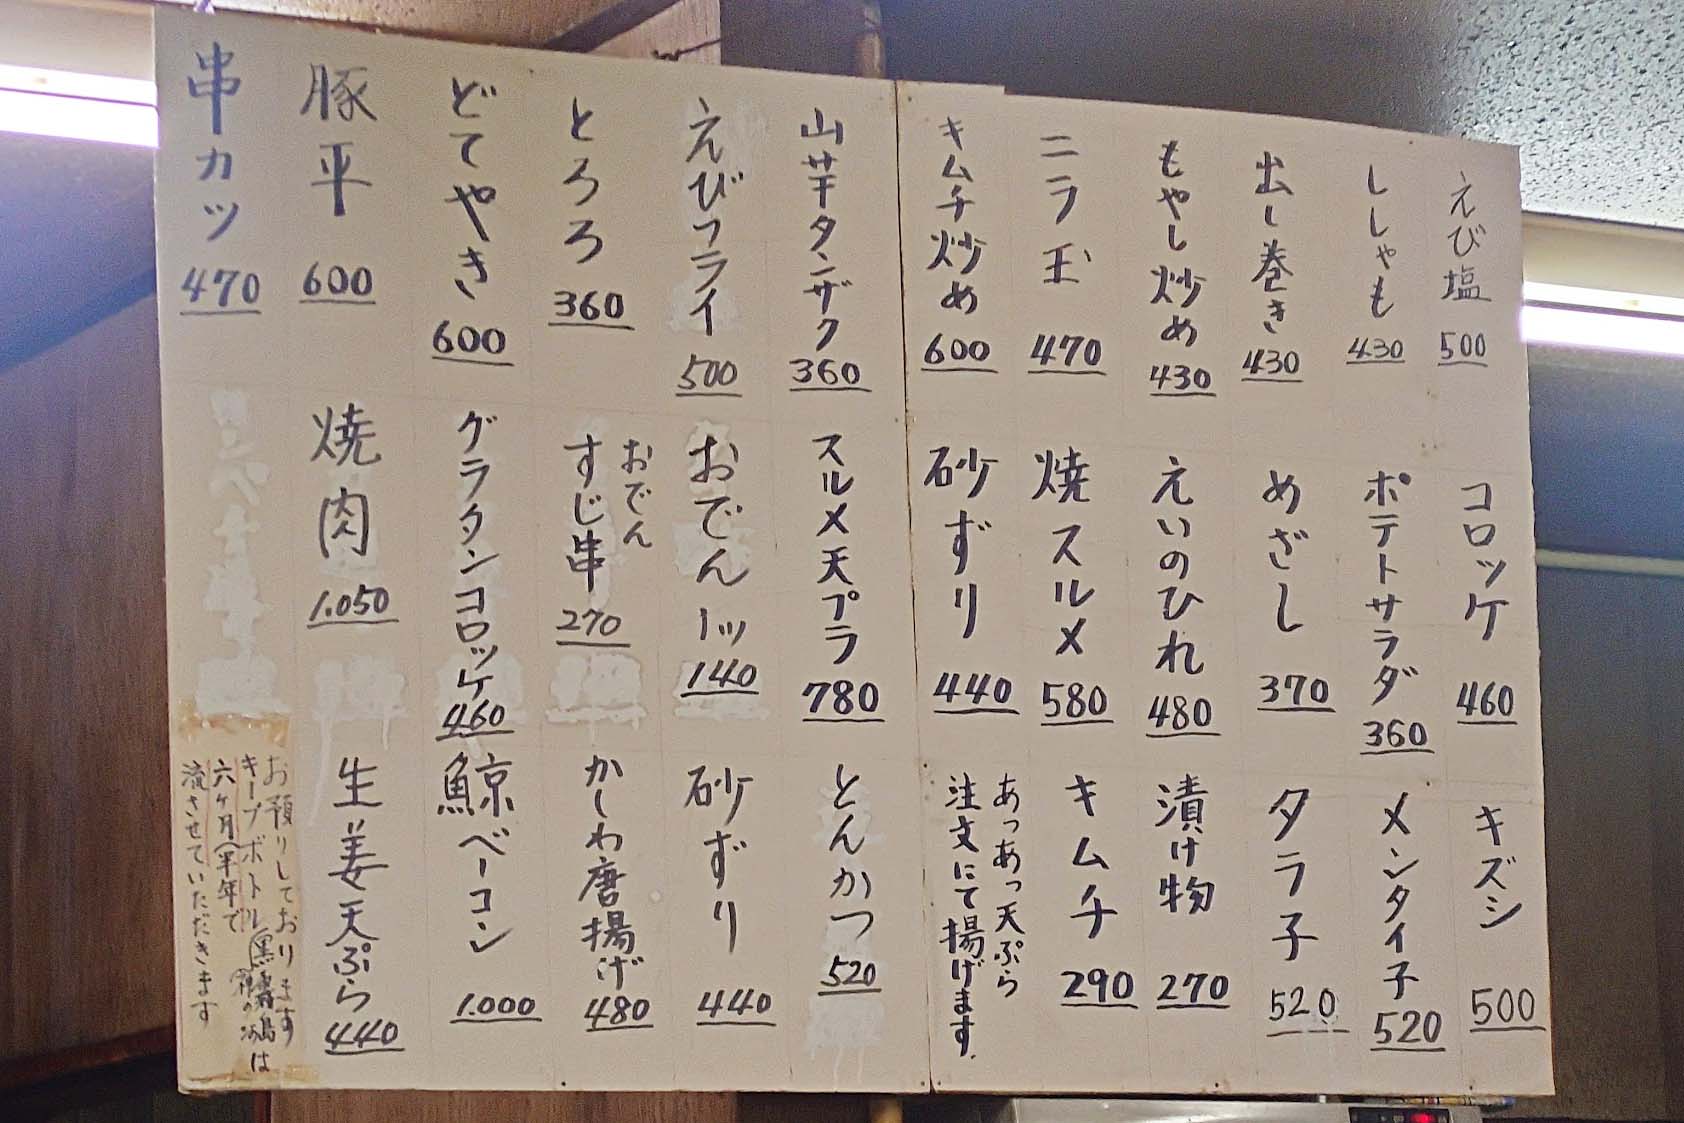 えび塩
500
ししゃも
430
出し巻き
430
もやし炒め
430
ニラ玉
470
キムチ炒め
600
山サキタンザク
360
えびフライ
500
とろろ
360
どてやき
600
豚平
600
串カツ
470
コロッケ
460
ポテトサラダ
360
めざし
370
えいのひれ
480
焼スルメ
580
砂ずり
440
スルメ天プラ
780
おでん一ッ
140
おでん
すじ串
270
グラタンコロッケ
460
焼肉
1.050
キズシ
500
メンタイ子
520
タラ子
520
漬け物
270
キムチ
290
あっあっ天ぷら
注文にて揚げます.
とんかつ
520
砂ずり
440
かしわ唐揚げ
480
鯨ベーコン
1.000
生姜天ぷら
440
お預りしております
キープボトル(黒霧島は
六ケ月(半年で
流させていただきます